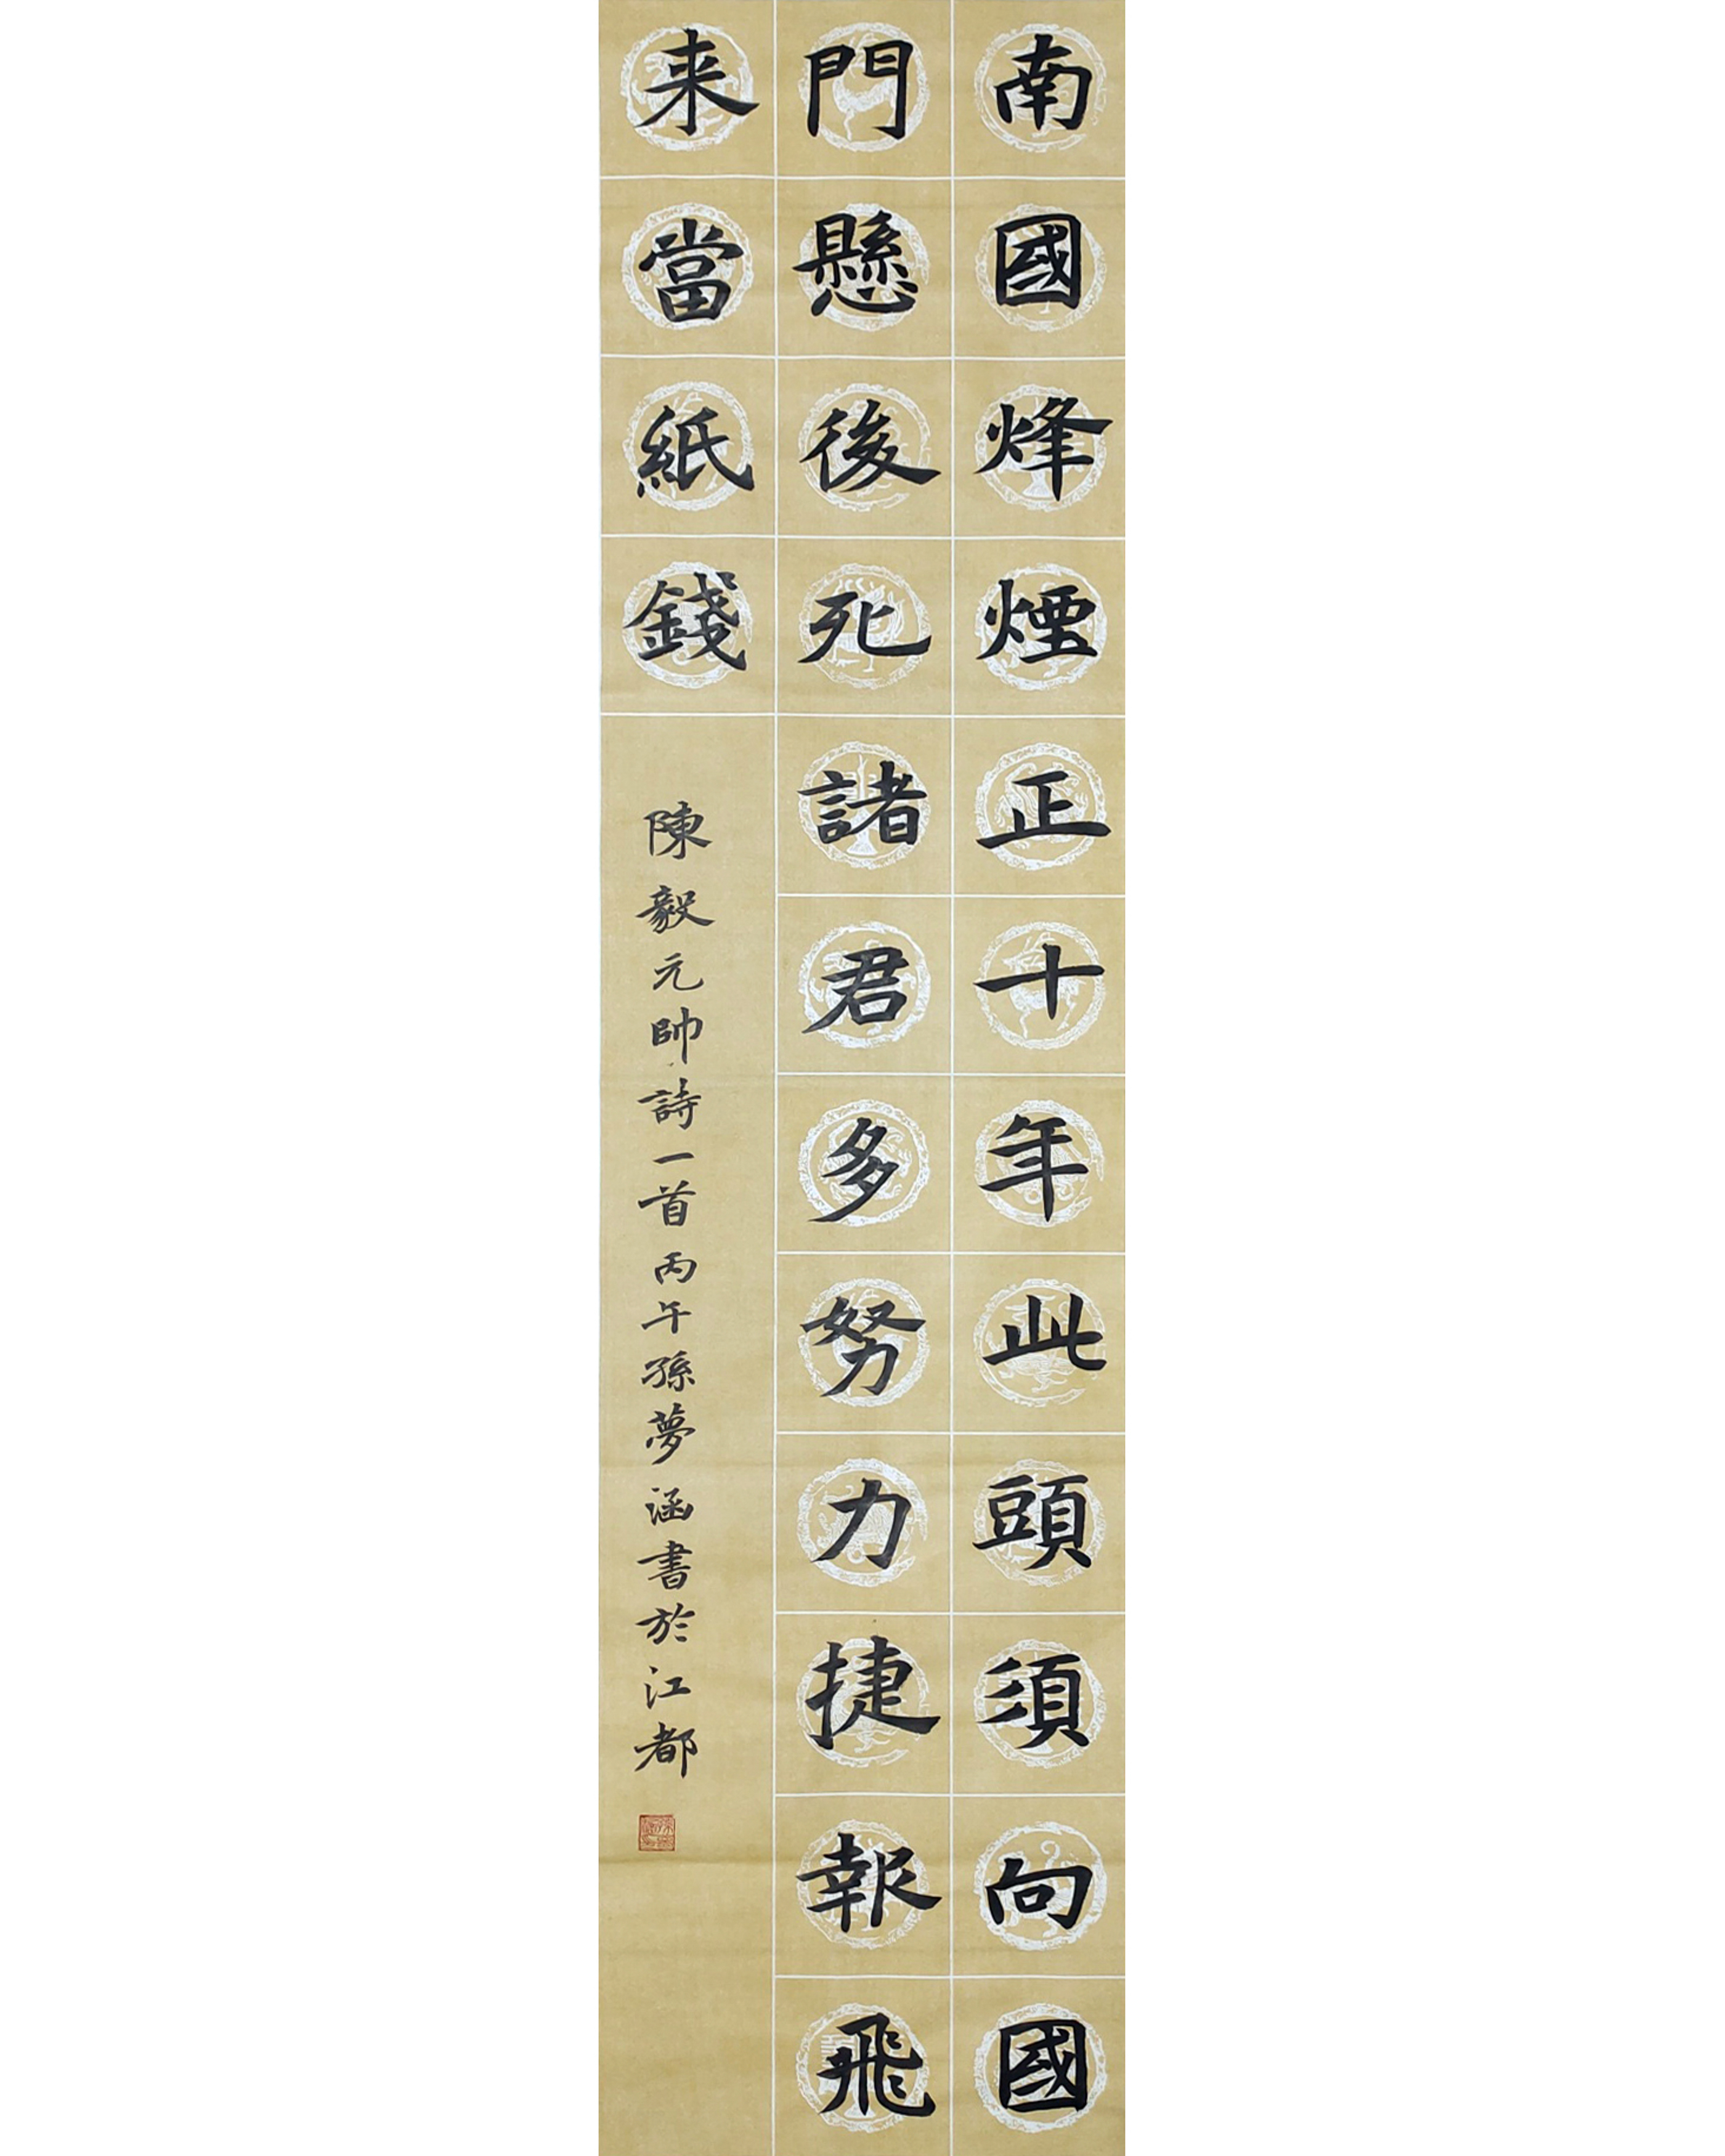 南國烽煙正十年此頭須向國
門懸後死諸君多努力捷報飛
来當紙錢
陳毅元帥詩一首丙午孫夢涵書於江都